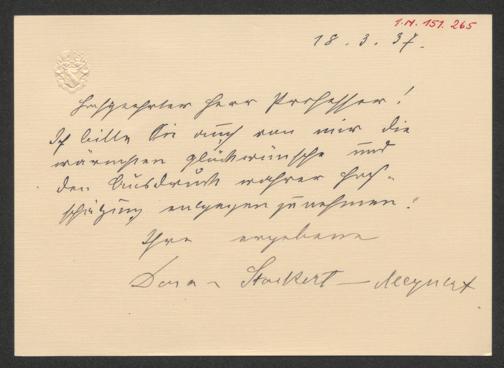 I.N. 151.265
18. 3. 37.
Hochgeehrter Herr Professor!
Ich bitte Sie auch von mir die
wärmsten Glückwünsche und
den Ausdruck wahrer Hoch-
schätzung entgegenzunehmen!
Ihre ergebene
Dora v Stockert-Meynert